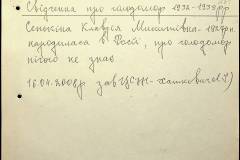 Свідчення про голодомор 1932-1933рр
Сенькіна Клавдія Микитівна - 1927р.н.
народилася в Росії, про голодомор
нічого не знаю
16.04.2008р зав ЦСЖ-